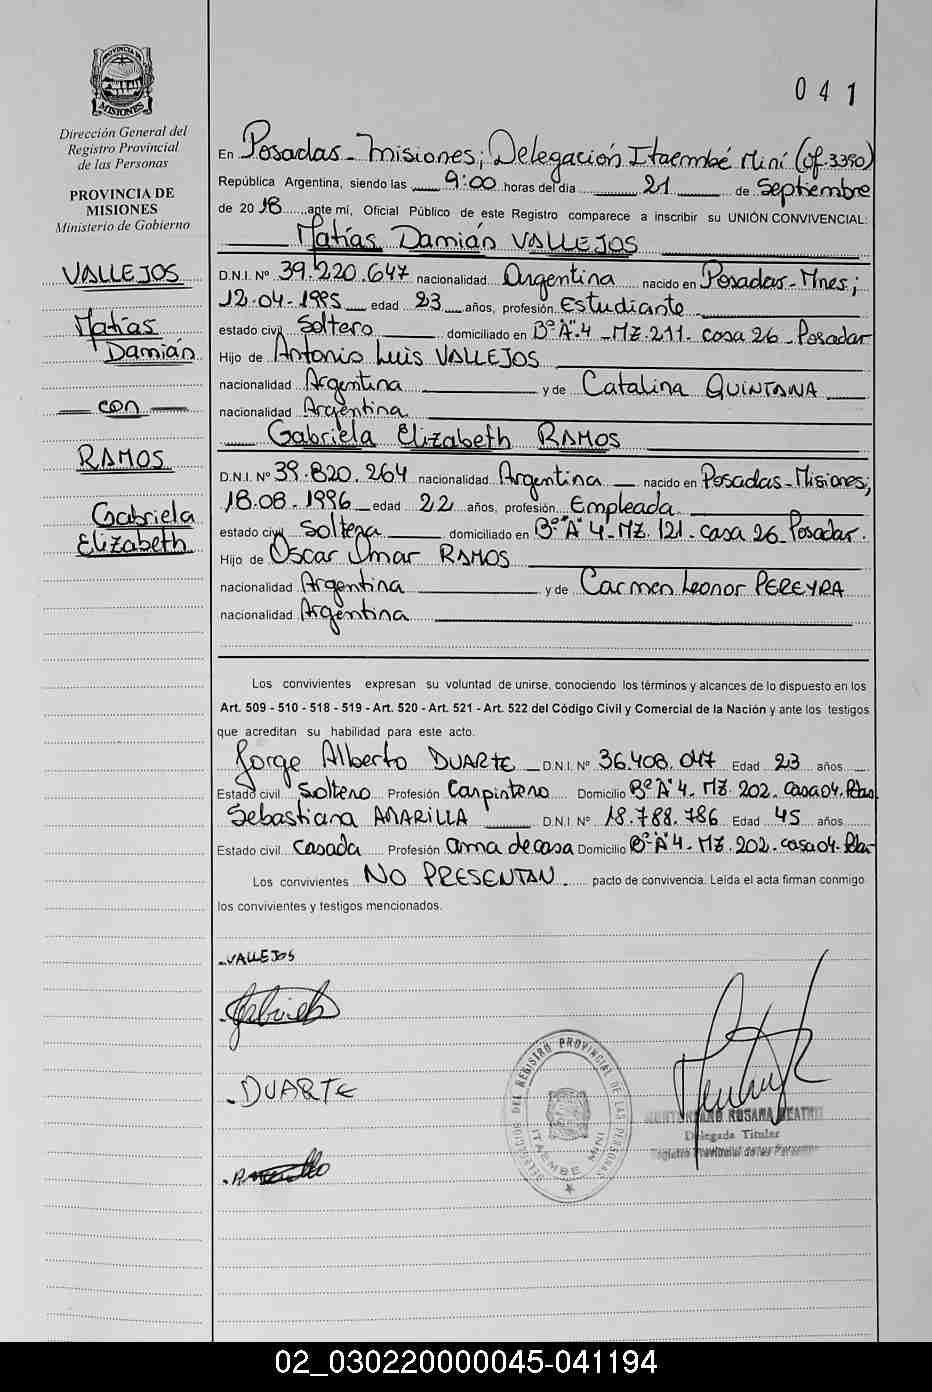 041
PROVINCIA DE
MISIONES
Dirección General del
Registro Provincial
de las Personas
PROVINCIA DE
MISIONES
Ministerio de Gobierno
VALLEJOS
Matías
Damián
con
RAMOS
Gabriela
Elizabeth
En Posadas - Misiones; Delegación Itaembé Miní (of. 3350)
República Argentina, siendo las 9:00 horas del día 21 de Septiembre
de 2018 ante mí, Oficial Público de este Registro comparece a inscribir su UNIÓN CONVIVENCIAL:
Matías Damián VALLEJOS
D.N.I. Nº 39.220.647 nacionalidad Argentina nacido en Posadas - Mnes;
12-04-1995 edad 23 años, profesión Estudiante
estado civil Soltero domiciliado en Bº "A" 4 - MZ. 211. casa 26 - Posadas
Hijo de Antonio Luis VALLEJOS
nacionalidad Argentina y de Catalina QUINTANA
nacionalidad Argentina
Gabriela Elizabeth RAMOS
D.N.I. Nº 39.820.264 nacionalidad Argentina nacido en Posadas - Misiones;
18.08.1996 edad 22 años, profesión Empleada
estado civil Soltera domiciliado en Bº "A" 4 - MZ. 121. casa 26 - Posadas.
Hijo de Oscar Omar RAMOS
nacionalidad Argentina y de Carmen Leonor PEREYRA
nacionalidad Argentina
Los convivientes expresan su voluntad de unirse, conociendo los términos y alcances de lo dispuesto en los
Art. 509 - 510 - 518 - 519 - Art. 520 - Art. 521 - Art. 522 del Código Civil y Comercial de la Nación y ante los testigos
que acreditan su habilidad para este acto.
Jorge Alberto DUARTE D.N.I. Nº 36.408.047 Edad 23 años
Estado civil Soltero Profesión Carpintero Domicilio Bº "A" 4 - MZ. 202. casa 04. Pdas
Sebastiana AMARILLA D.N.I. Nº 18.788.786 Edad 45 años
Estado civil casada Profesión ama de casa Domicilio Bº "A" 4 - MZ. 202 - casa 04 - Pdas
Los convivientes NO PRESENTAN pacto de convivencia. Leída el acta firman conmigo
los convivientes y testigos mencionados.
VALLEJOS
Gabriela
DUARTE
DEL REGISTRO PROVINCIAL DE LAS PERSONAS
ITAEMBE MINI
ROSANA BEATRIZ
Delegada Titular
Registro Provincial de las Personas
02_030220000045-041194